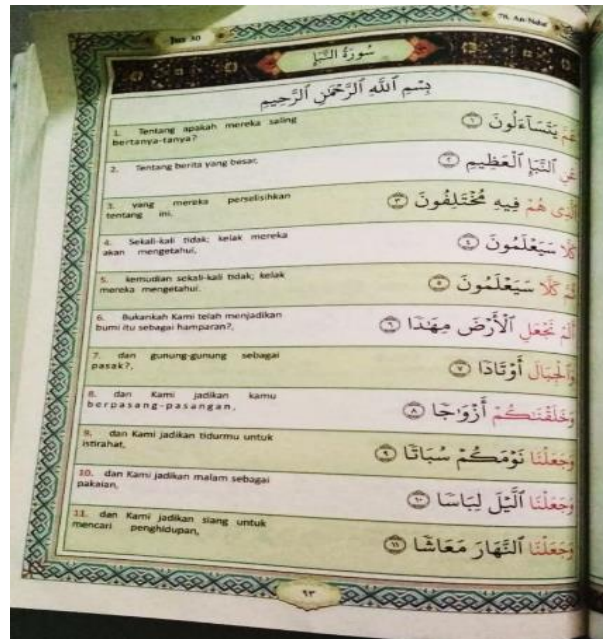 Juz 30
78. An-Naba'
سُورَةُ النَّبَإِ
بِسْمِ ٱللَّهِ ٱلرَّحْمَٰنِ ٱلرَّحِيمِ
1. Tentang apakah mereka saling
bertanya-tanya?
عَمَّ يَتَسَآءَلُونَ ١
2. Tentang berita yang besar,
عَنِ ٱلنَّبَإِ ٱلْعَظِيمِ ٢
3. yang mereka perselisihkan
tentang ini.
ٱلَّذِى هُمْ فِيهِ مُخْتَلِفُونَ ٣
4. Sekali-kali tidak; kelak mereka
akan mengetahui,
كَلَّا سَيَعْلَمُونَ ٤
5. kemudian sekali-kali tidak; kelak
mereka mengetahui.
ثُمَّ كَلَّا سَيَعْلَمُونَ ٥
6. Bukankah Kami telah menjadikan
bumi itu sebagai hamparan?,
أَلَمْ نَجْعَلِ ٱلْأَرْضَ مِهَٰدًا ٦
7. dan gunung-gunung sebagai
pasak?,
وَٱلْجِبَالَ أَوْتَادًا ٧
8. dan Kami jadikan kamu
berpasang-pasangan,
وَخَلَقْنَٰكُمْ أَزْوَٰجًا ٨
9. dan Kami jadikan tidurmu untuk
istirahat,
وَجَعَلْنَا نَوْمَكُمْ سُبَاتًا ٩
10. dan Kami jadikan malam sebagai
pakaian,
وَجَعَلْنَا ٱلَّيْلَ لِبَاسًا ١٠
11. dan Kami jadikan siang untuk
mencari penghidupan,
وَجَعَلْنَا ٱلنَّهَارَ مَعَاشًا ١١
٩٣